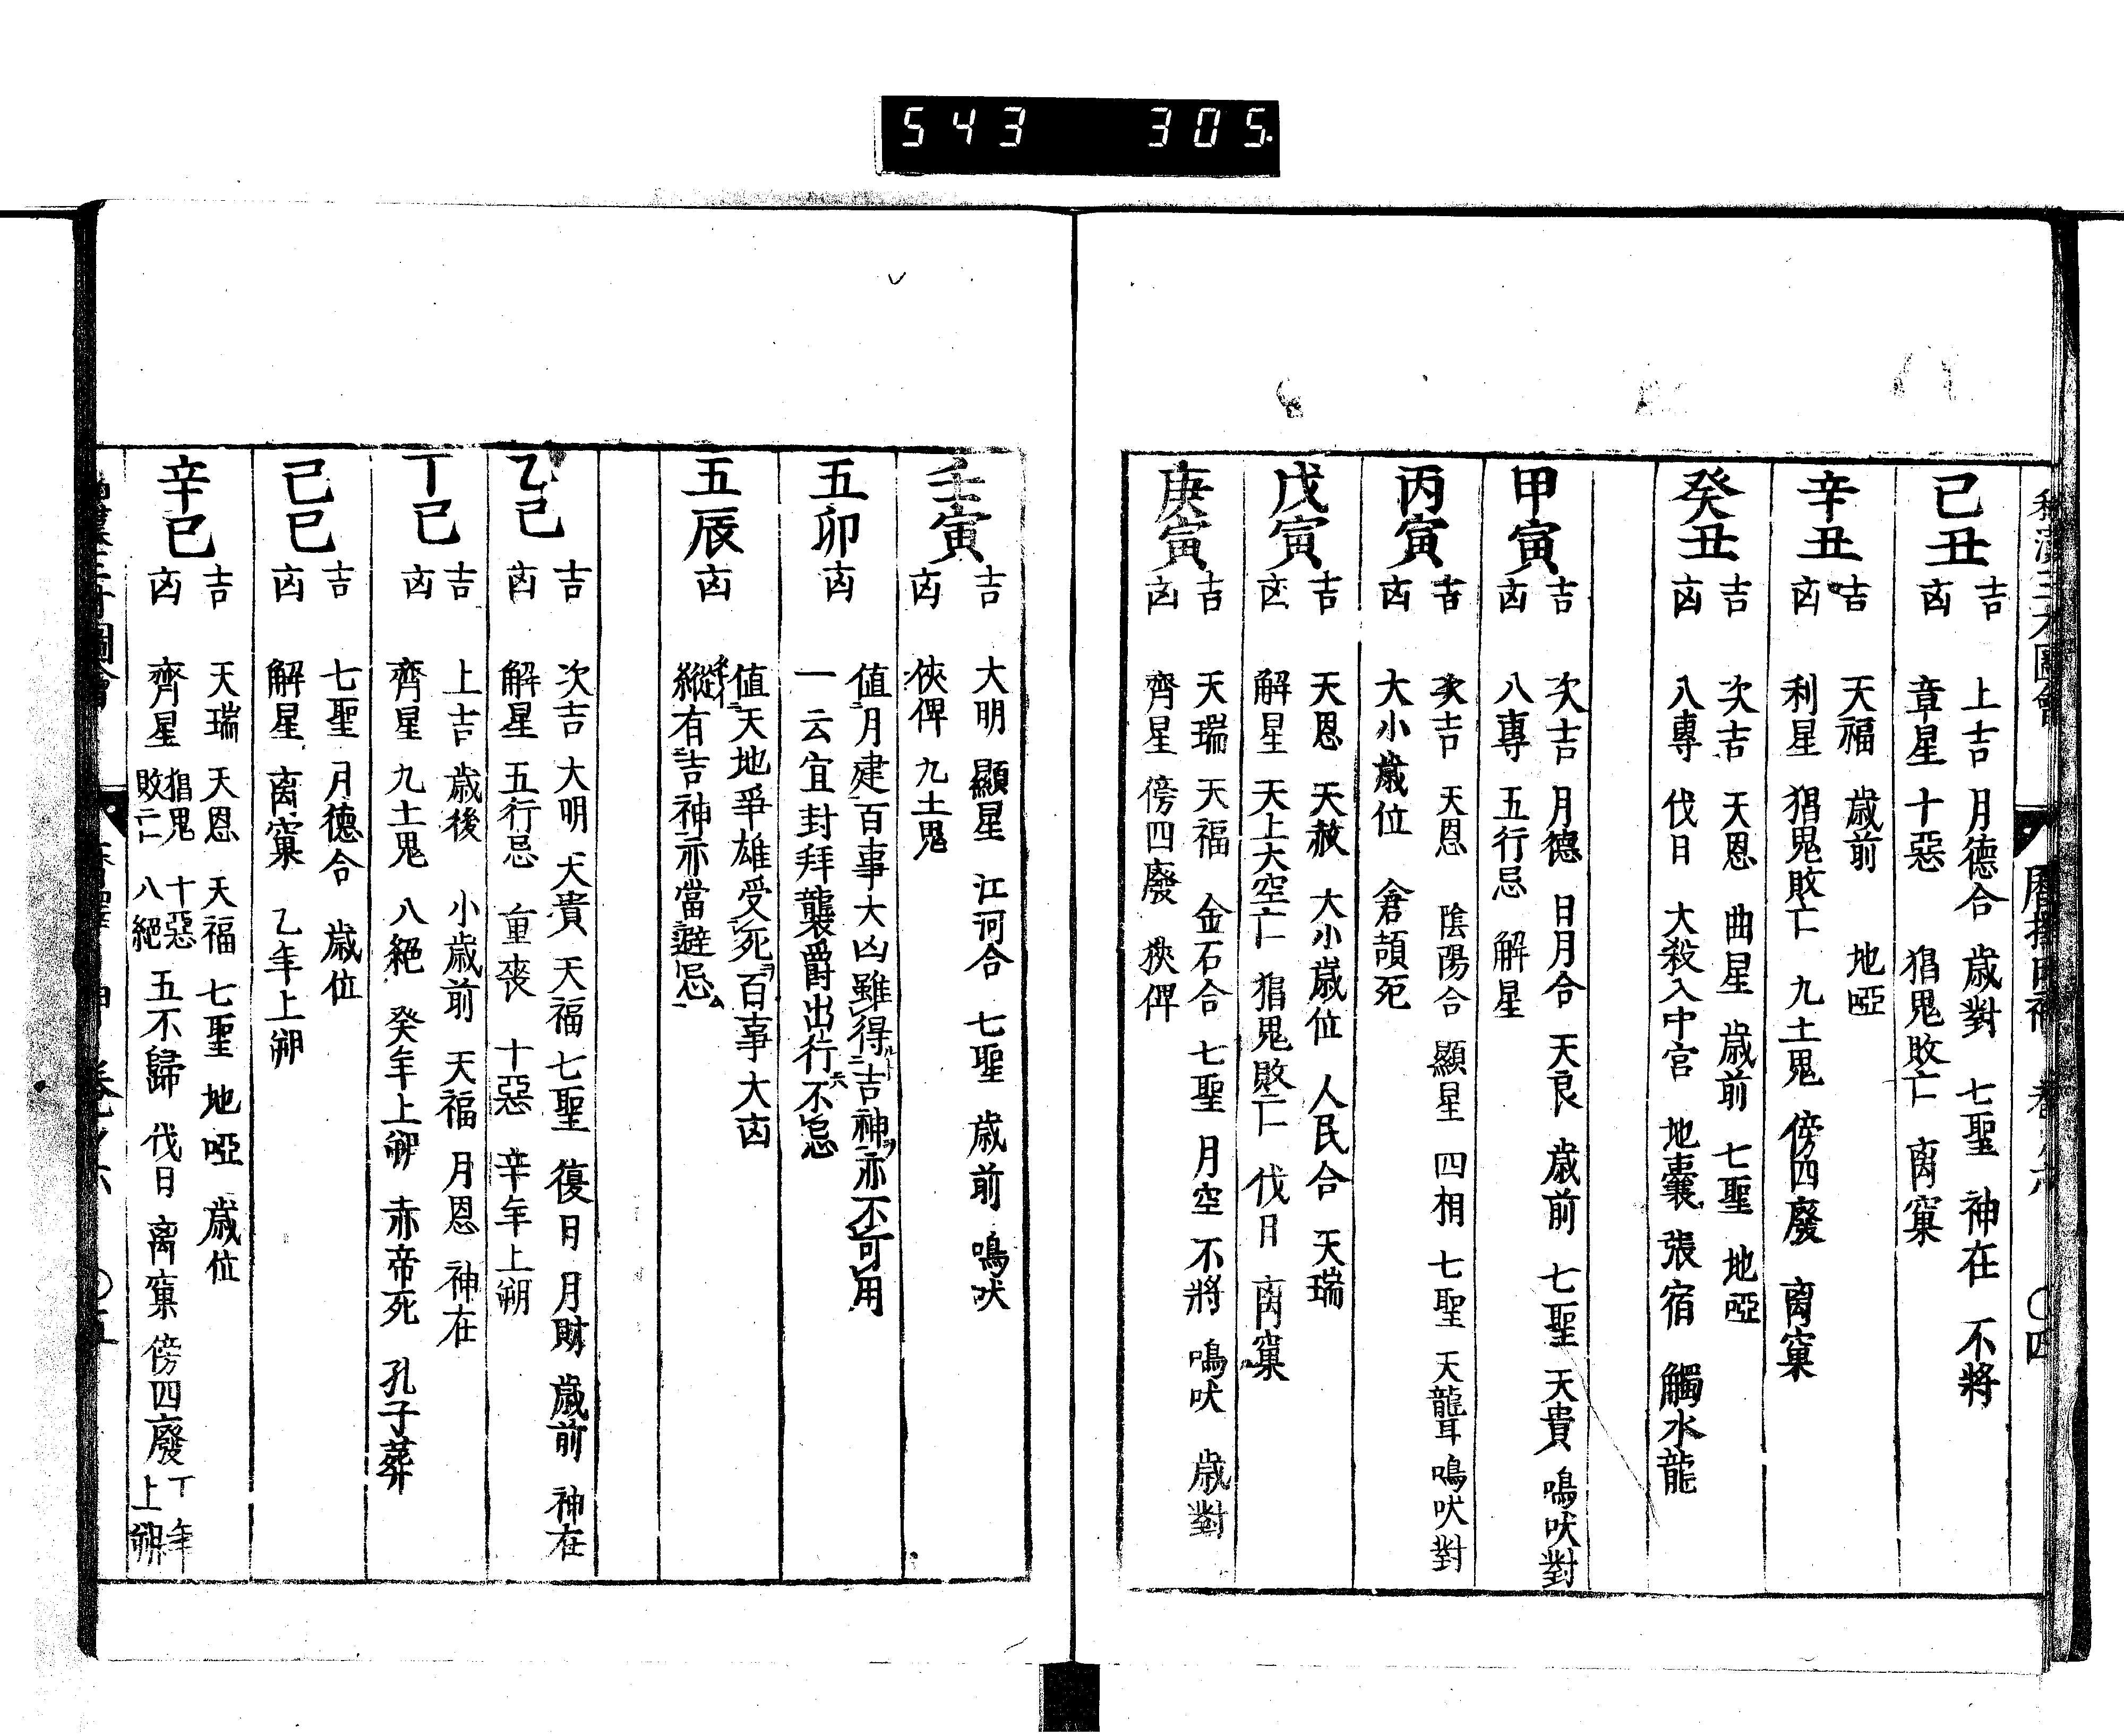 543 305.
己丑 吉 上吉 月德合 歳對 七聖 神在 不將
凶 章星 十惡 猖鬼敗亡 离窠
辛丑 吉 天福 歳前 地啞
凶 利星 猖鬼敗亡 九土鬼 傍四廢 离窠
癸丑 吉 次吉 天恩 曲星 歳前 七聖 地啞
凶 八專 伐日 大殺入中宮 地囊 張宿 觸水龍
甲寅 吉 次吉 月德 日月合 天良 歳前 七聖 天貴 鳴吠對
凶 八專 五行忌 解星
丙寅 吉 次吉 天恩 陰陽合 顯星 四相 七聖 天聾 鳴吠對
凶 大小歳位 倉頡死
戊寅 吉 天恩 天赦 大小歳位 人民合 天瑞
凶 解星 天上大空亡 猖鬼敗亡 伐日 离窠
庚寅 吉 天瑞 天福 金石合 七聖 月空 不將 鳴吠 歳對
凶 齊星 傍四廢 狹俾
壬寅 吉 大明 顯星 江河合 七聖 歳前 鳴吠
凶 俠俾 九土鬼
五卯 凶 值月建百事大凶雖得吉神亦不可用
一云宜封拜襲爵出行不忌
五辰 凶 值天地爭雄受死百事大凶
縱有吉神亦當避忌
乙巳 吉 次吉 大明 天貴 天福 七聖 復日 月財 歳前 神在
凶 解星 五行忌 重喪 十惡 辛年上朔
丁巳 吉 上吉 歳後 小歳前 天福 月恩 神在
凶 齊星 九土鬼 八絕 癸年上朔 赤帝死 孔子葬
己巳 吉 七聖 月德合 歳位
凶 解星 离窠 乙年上朔
辛巳 吉 天瑞 天恩 天福 七聖 地啞 歳位
凶 齊星 猖鬼敗亡 十惡 八絕 五不歸 伐日 离窠 傍四廢 丁年上朔